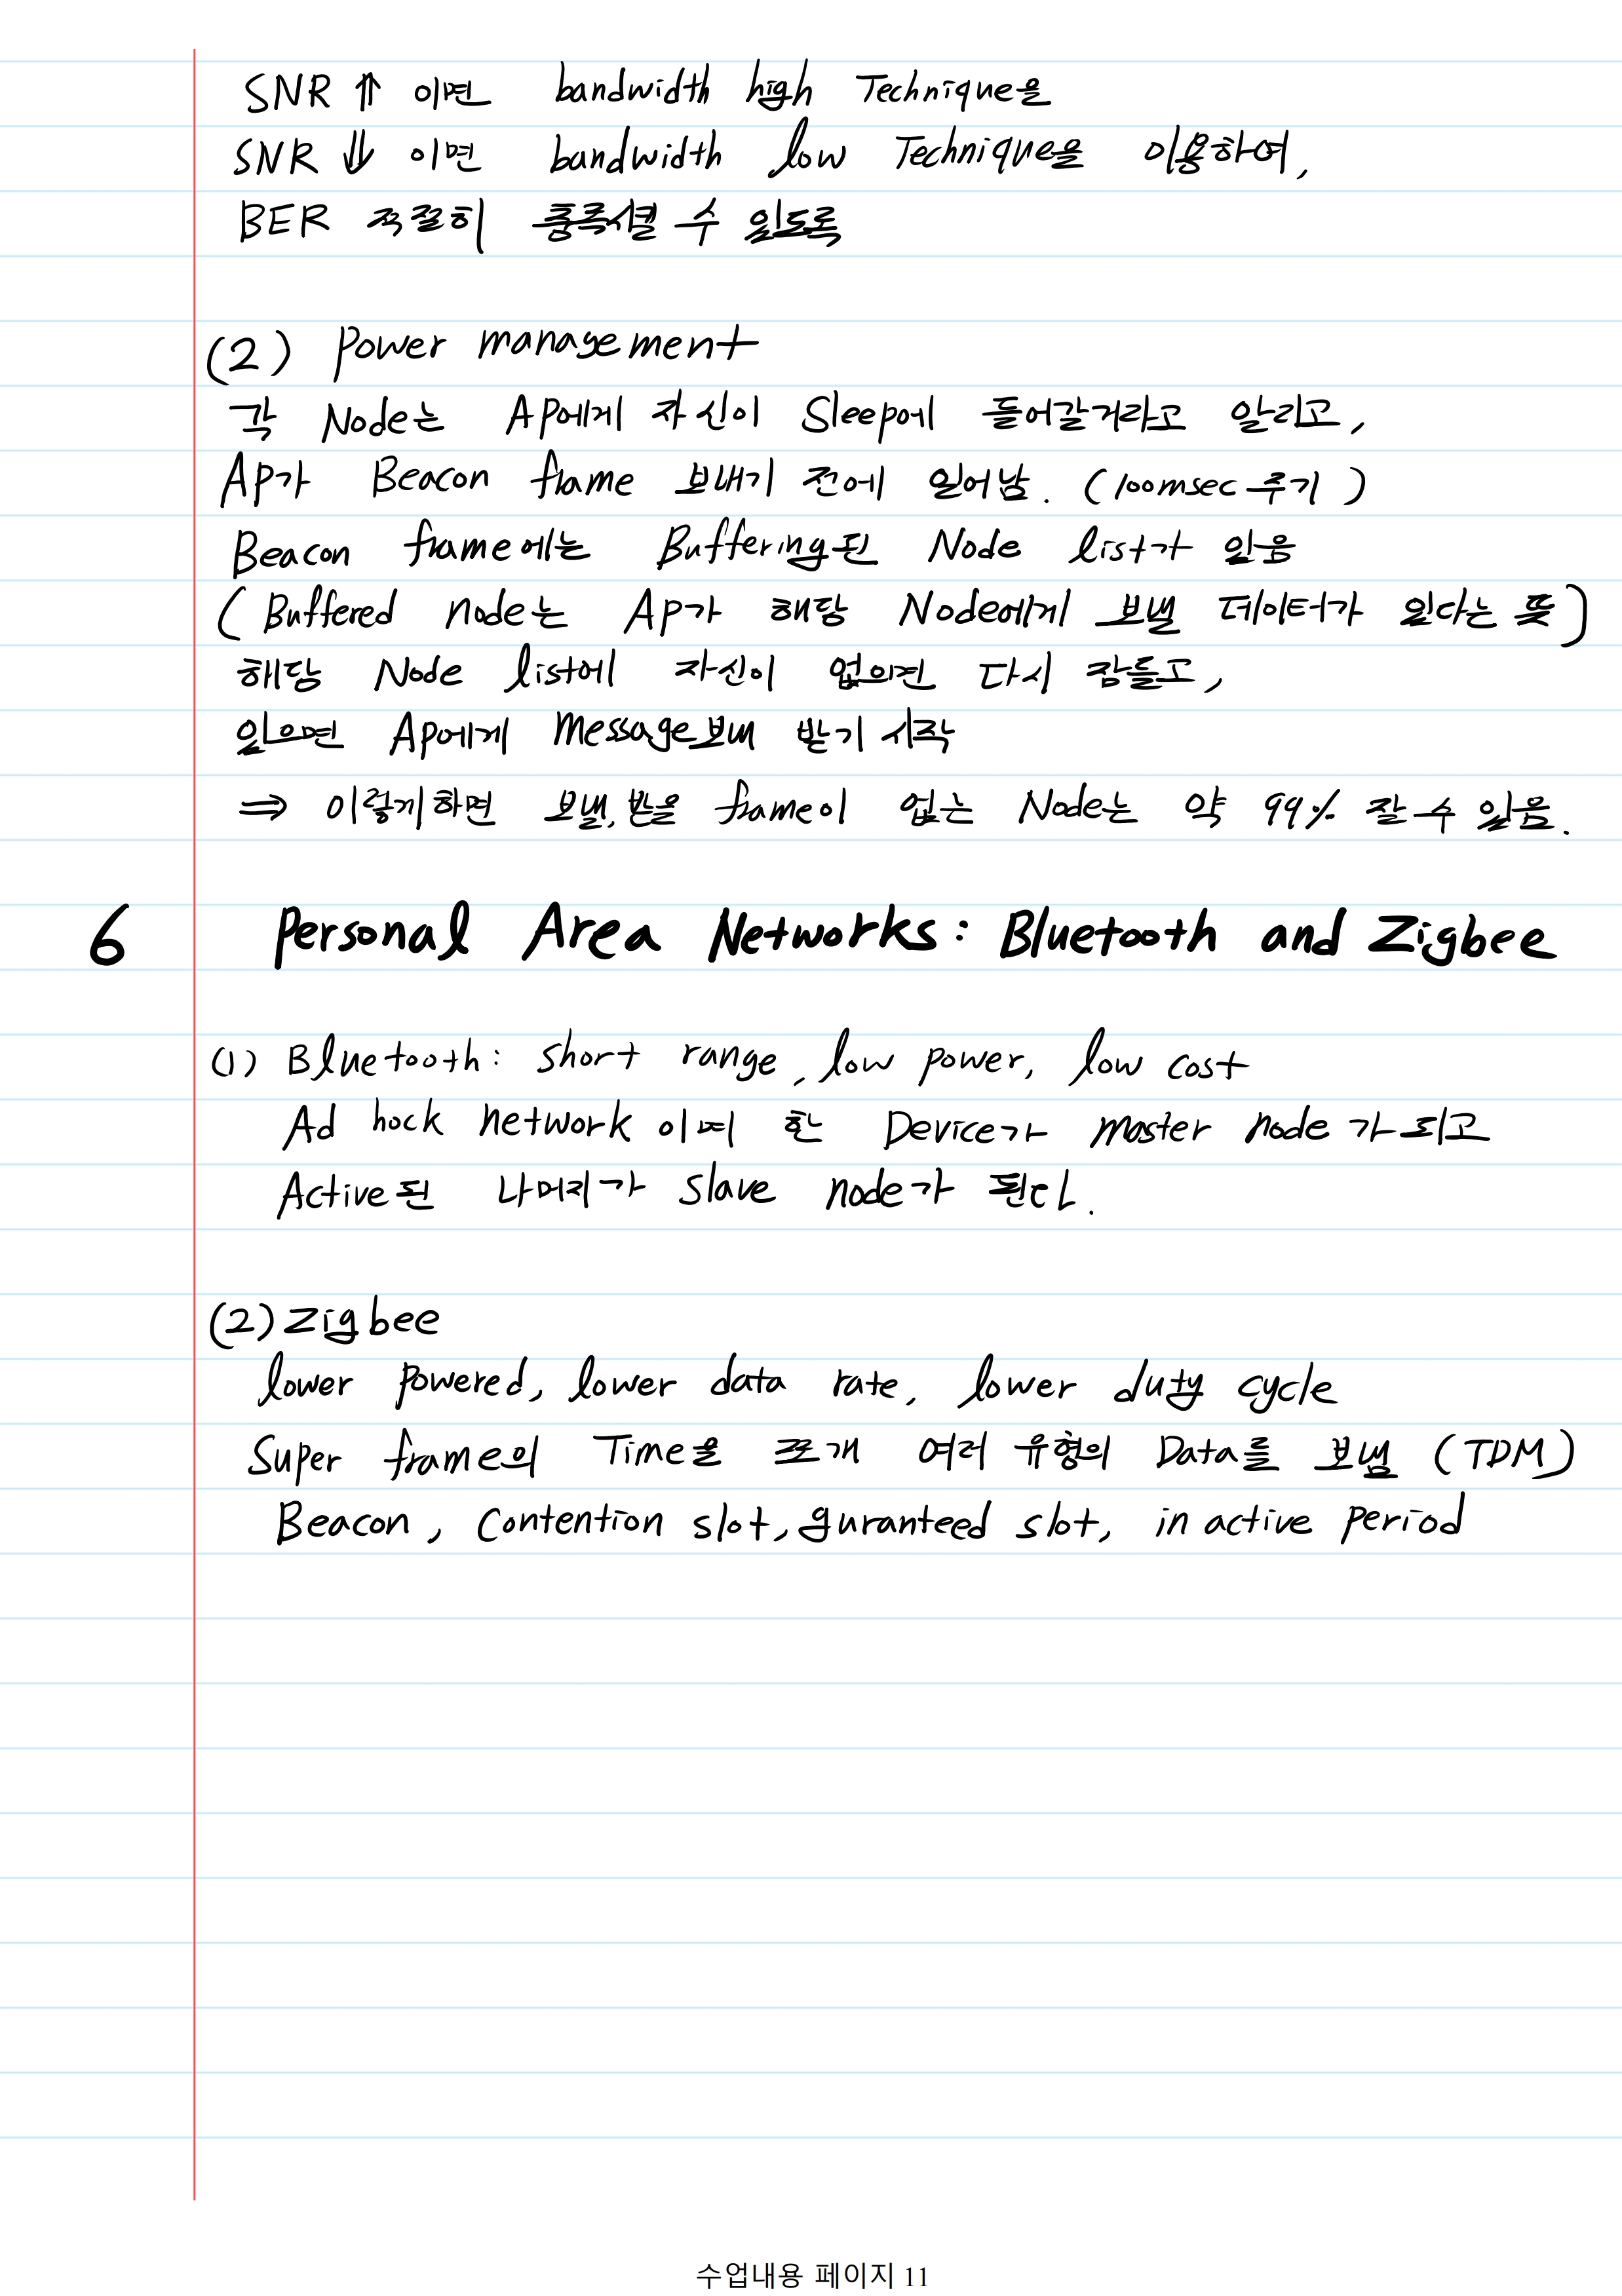 SNR ⇑ 이면 bandwidth high Technique을
SNR ⇓ 이면 bandwidth low Technique을 이용하여,
BER 적절히 충족시킬 수 있도록
(2) Power management
각 Node는 AP에게 자신이 Sleep에 들어갈거라고 알리고,
AP가 Beacon frame 보내기 전에 일어남. (100msec 주기)
Beacon frame에는 Buffering된 Node list가 있음
(Buffered node는 AP가 해당 Node에게 보낼 데이터가 있다는 뜻)
해당 Node list에 자신이 없으면 다시 잠들고,
있으면 AP에게 Message보내 받기 시작
⇒ 이렇게하면 보낼, 받을 frame이 없는 Node는 약 99% 잘 수 있음.
6 Personal Area Networks: Bluetooth and Zigbee
(1) Bluetooth: short range, low power, low cost
Ad hock network 이며 한 Device가 master node가 되고
Active된 나머지가 slave node가 된다.
(2) Zigbee
lower powered, lower data rate, lower duty cycle
Super frame의 Time을 쪼개 여러 유형의 Data를 보냄 (TDM)
Beacon, Contention slot, guranteed slot, inactive period
수업내용 페이지 11